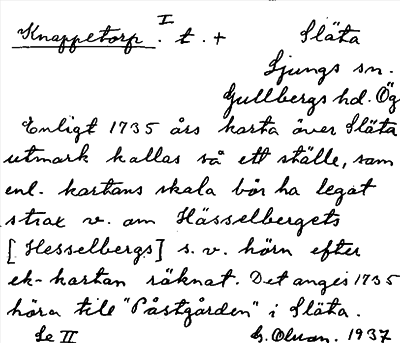 Knappetorp I. t. + Släta
Ljungs sn.
Gullbergs hd. Ög
Enligt 1735 års karta över Släta
utmark kallas så ett ställe, som
enl. kartans skala bör ha legat
strax v. om Hässelbergets
[Hesselbergs] s.v. hörn efter
ek-kartan räknat. Det anges 1735
höra till "Påstgården" i Släta.
Le II 1937